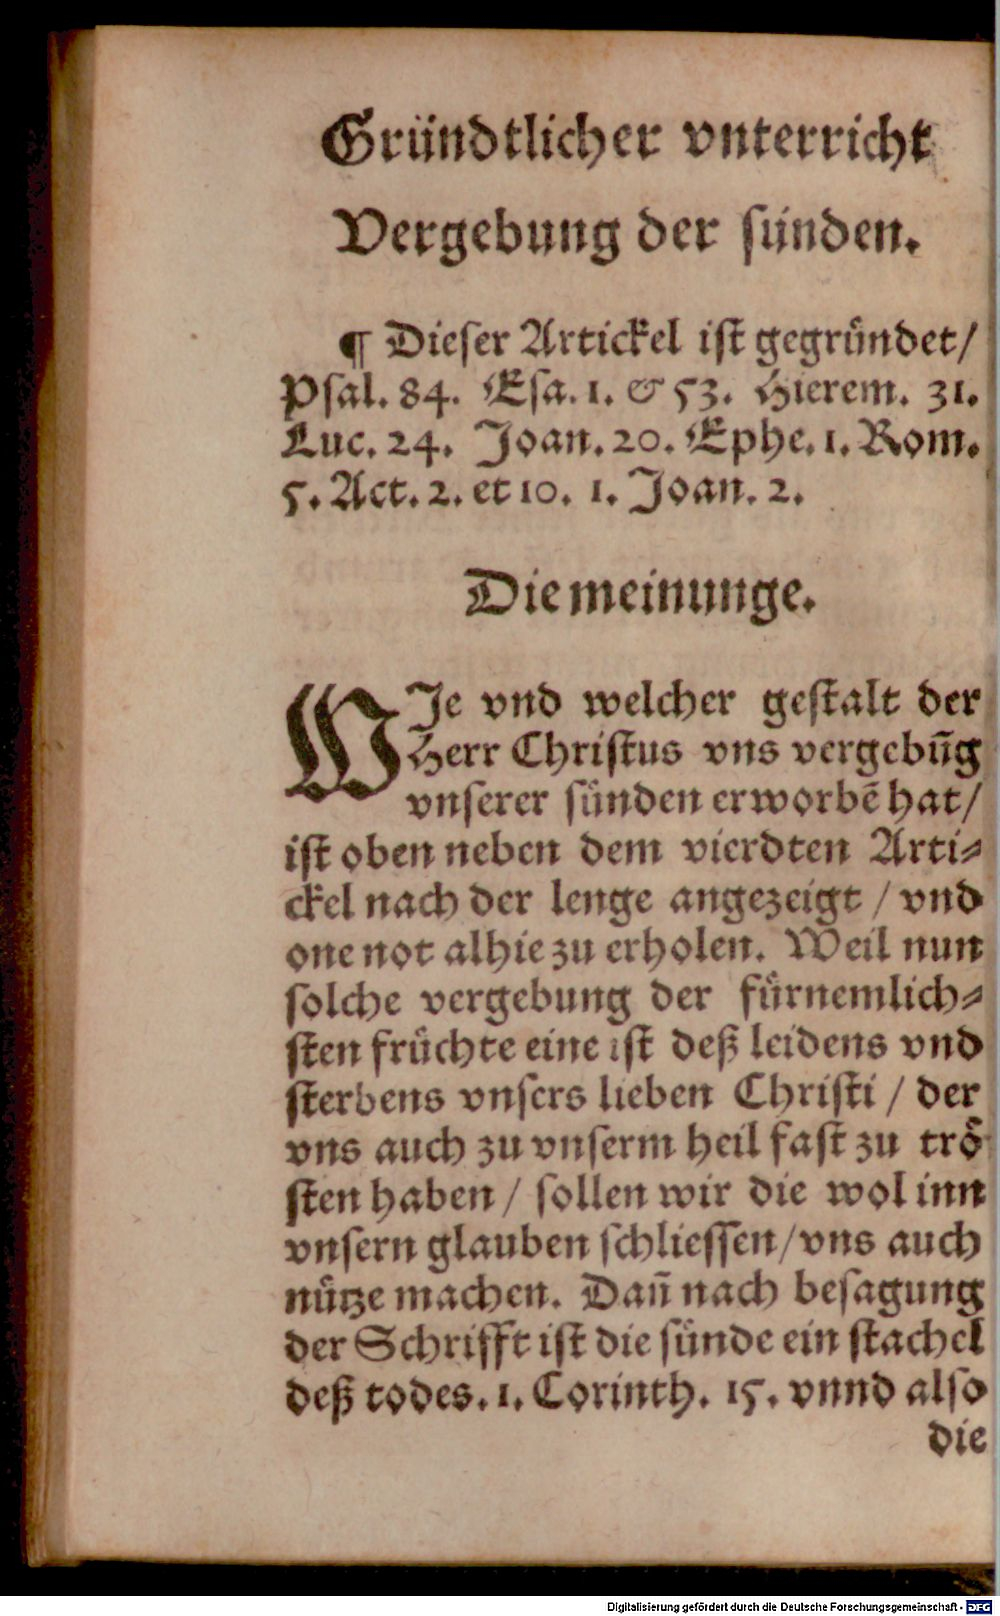 Gründtlicher vnterricht
Vergebung der sünden.
¶ Dieser Artickel ist gegründet/
Psal. 84. Esa. 1. & 53. Hierem. 31.
Luc. 24. Joan. 20. Ephe. 1. Rom.
5. Act. 2. et 10. 1. Joan. 2.
Die meinunge.
WJe vnd welcher gestalt der
Herr Christus vns vergebūg
vnserer sünden erworbē hat/
ist oben neben dem vierdten Arti⸗
ckel nach der lenge angezeigt / vnd
one not alhie zu erholen. Weil nun
solche vergebung der fürnemlich⸗
sten früchte eine ist deß leidens vnd
sterbens vnsers lieben Christi / der
vns auch zu vnserm heil fast zu trö
sten haben / sollen wir die wol inn
vnsern glauben schliessen/vns auch
nütze machen. Dañ nach besagung
der Schrifft ist die sünde ein stachel
deß todes. 1. Corinth. 15. vnnd also
die
Digitalisierung gefördert durch die Deutsche Forschungsgemeinschaft - DFG